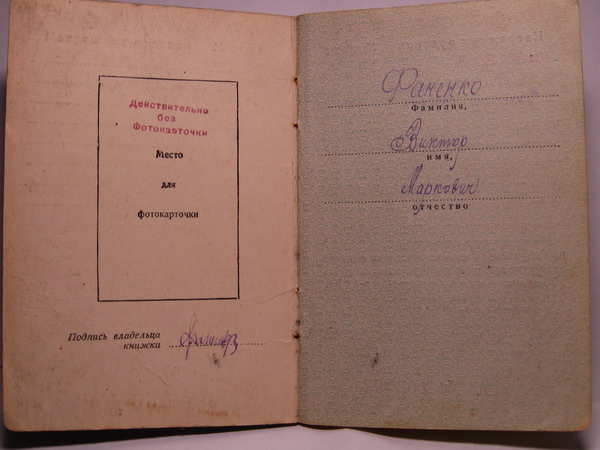 Действительно
без
Фотокарточки
Место
для
фотокарточки
Подпись владельца
книжки
Фаненко
фамилия,
Виктор
имя,
Маркович
отчество